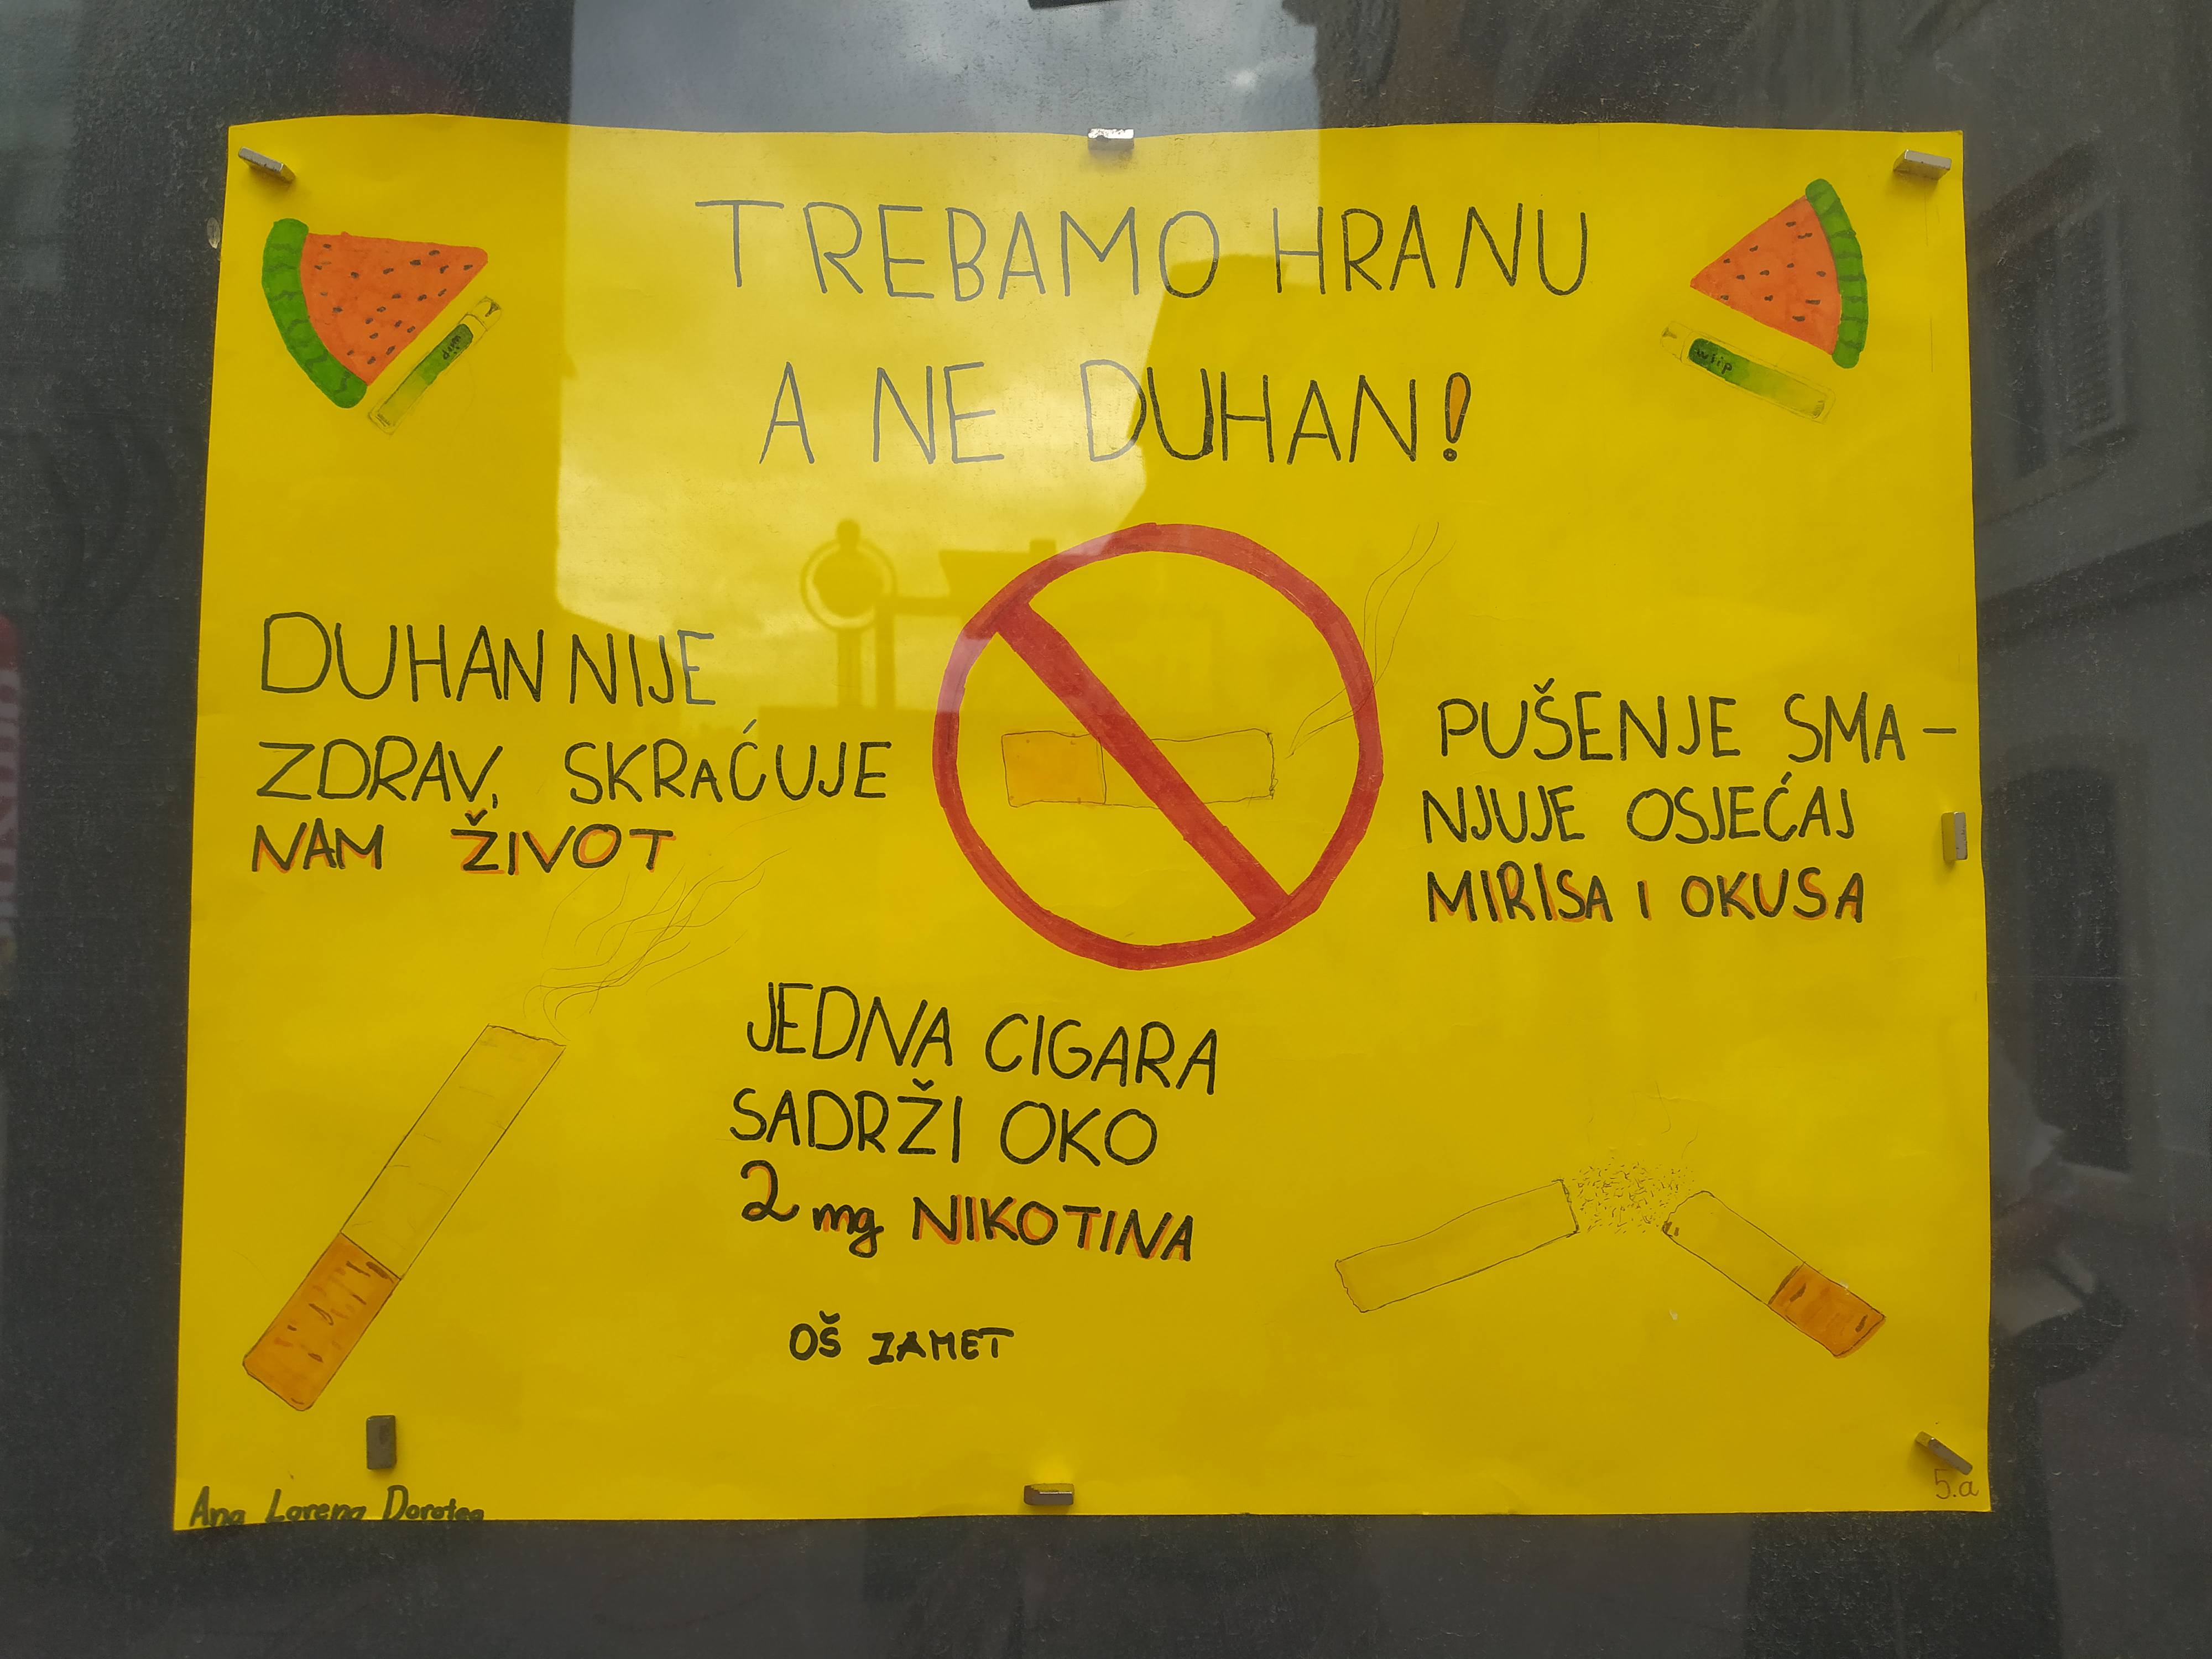 TREBAMO HRANU
A NE DUHAN!
DUHAN NIJE
ZDRAV, SKRAĆUJE
NAM ŽIVOT
PUŠENJE SMA-
NJUJE OSJEĆAJ
MIRISA I OKUSA
JEDNA CIGARA
SADRŽI OKO
2 mg NIKOTINA
OŠ ZAMET
Ana Lorena Dorotea
5.a